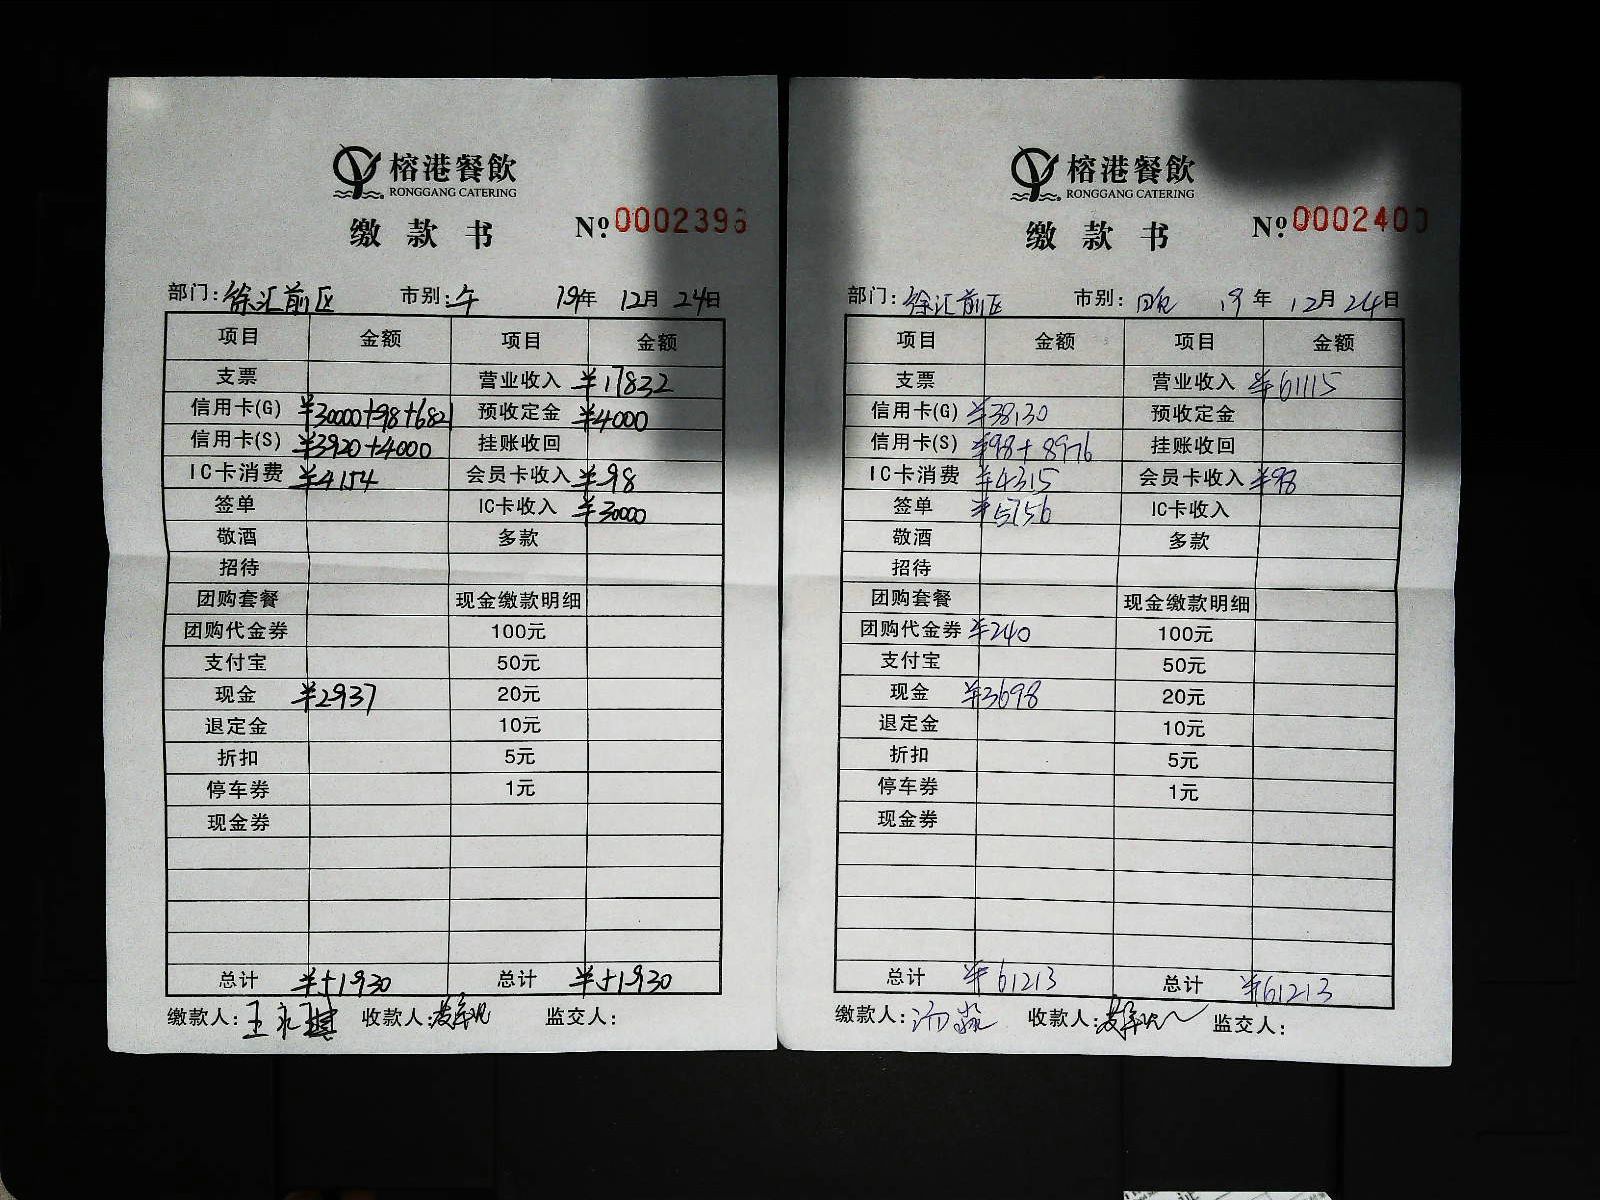 榕港餐飲
RONGGANG CATERING
缴款书 Nº 0002398
部门: 徐汇前区 市别: 午 19年 12月 24日
项目 金额 项目 金额
支票 营业收入 ¥17832
信用卡(G) ¥30000+98+6821 预收定金 ¥4000
信用卡(S) ¥3920+4000 挂账收回
IC卡消费 ¥4154 会员卡收入 ¥98
签单 IC卡收入 ¥30000
敬酒 多款
招待
团购套餐 现金缴款明细
团购代金券 100元
支付宝 50元
现金 ¥2937 20元
退定金 10元
折扣 5元
停车券 1元
现金券
总计 ¥51930 总计 ¥51930
缴款人: 收款人: 监交人:
榕港餐飲
RONGGANG CATERING
缴款书 Nº 0002400
部门: 徐汇前区 市别: 晚 19年 12月 24日
项目 金额 项目 金额
支票 营业收入 ¥61115
信用卡(G) ¥38130 预收定金
信用卡(S) ¥98+8976 挂账收回
IC卡消费 ¥4315 会员卡收入 ¥98
签单 ¥5756 IC卡收入
敬酒 多款
招待
团购套餐 现金缴款明细
团购代金券 ¥240 100元
支付宝 50元
现金 ¥3698 20元
退定金 10元
折扣 5元
停车券 1元
现金券
总计 ¥61213 总计 ¥61213
缴款人: 收款人: 监交人: